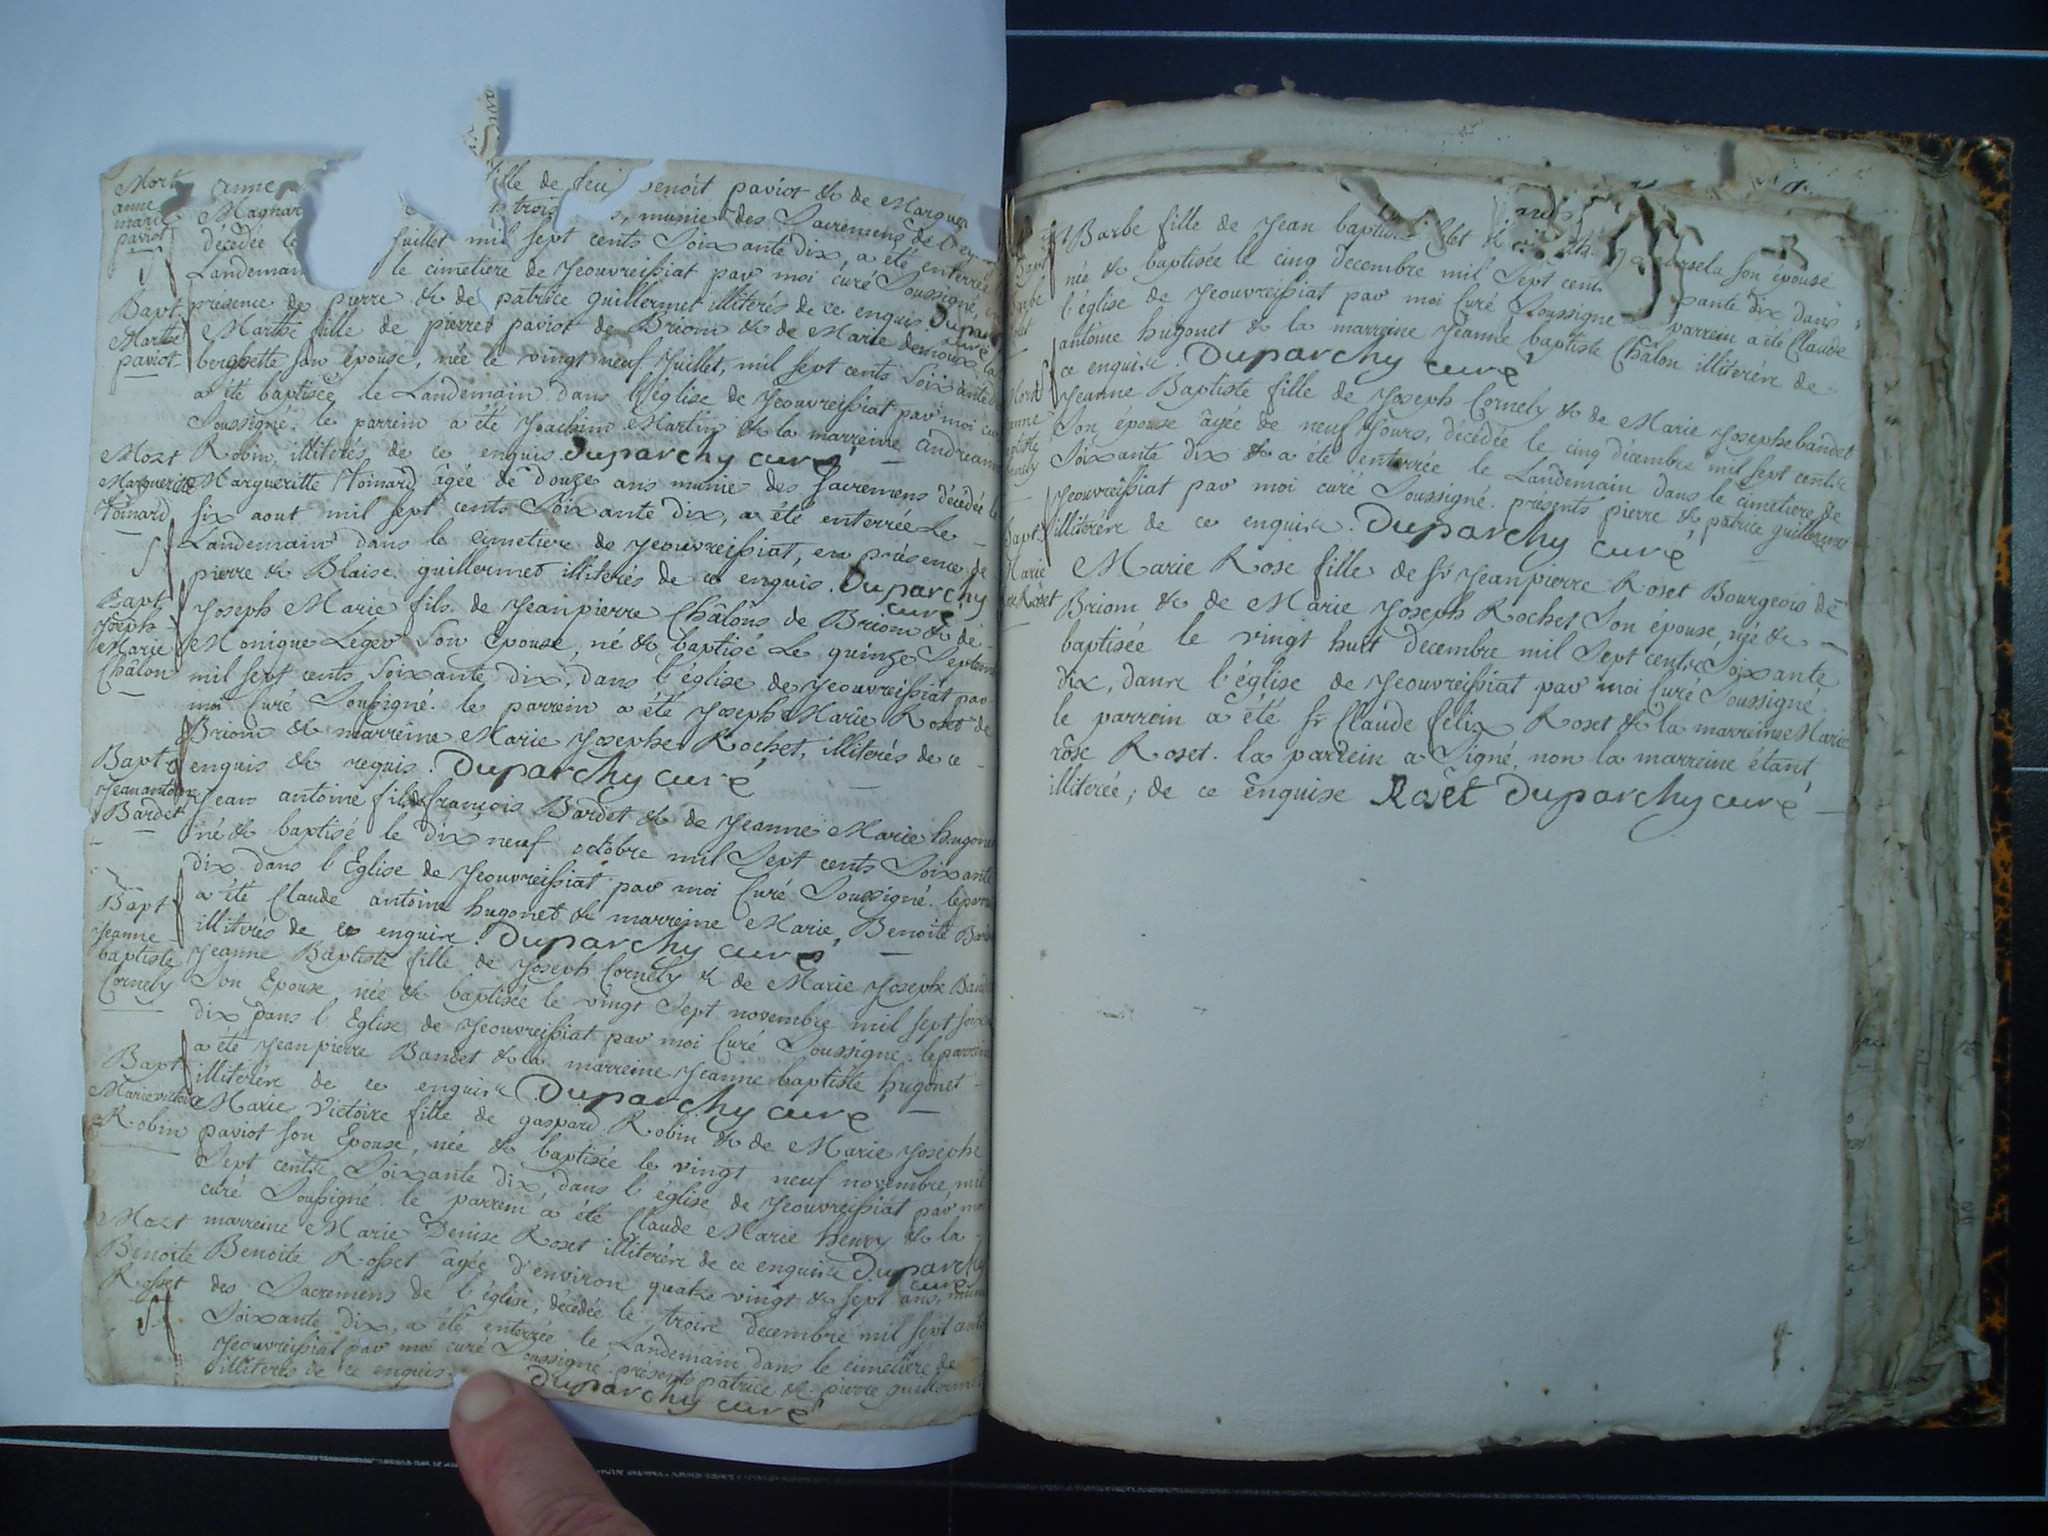 Mort
anne
marie
paviot
Anne fille de feu benoit paviot & de Margue
Magnar trois, munie des Sacremens de
décédée le Juillet mil sept cents Soixante dix, a été enterrée
Landemain le cimetiere de Yeouvreissiat par moi curé Soussigné, en
présence de pierre & de patrice guillermet illiterés de ce enquis Duparchy
curé
Bapt
Marthe
paviot
Marthe fille de pierre paviot de Briom & de Marie demoux la
bergette son épouse, née le vingt neuf Juillet, mil sept cents Soixante d
a été baptisée le Landemain dans l'église de Yeouvreissiat par moi cu
Soussigné. le parrein a été Joachim Martin & la marreine andreanne
Robin, illiterés de ce enquis Duparchy curé
Mort
Margueritte
Toinard
Margueritte Toinard âgée de douze ans munie des Sacremens décédée le
six aout mil sept cents Soixante dix, a été enterrée Le
Landemain dans le cimetiere de Yeouvreissiat, en présence de
pierre & Blaise guillermet illiterés de ce enquis. Duparchy
curé
Bapt
Joseph
Marie
Châlon
Joseph Marie fils de Jeanpierre Châlons de Briom & de
Monique Leger Son Epouse, né & baptisé Le quinze Septem
mil sept cents Soixante dix, dans l'église de Yeouvreissiat par
moi Curé Soussigné. le parrein a été Joseph Marie Roset de
Briom & marreine Marie Josephe Rochet, illiterés de ce
enquis & requis. Duparchy curé
Bapt
Jean antoine
Bardet
Jean antoine fils de françois Bardet & de Jeanne Marie hugonet
né & baptisé le dix neuf octobre mil Sept cents Soixante
dix dans l'Eglise de Yeouvreissiat par moi Curé Soussigné. le parr
a été Claude antoine hugonet & marreine Marie Benoite
illiterés de ce enquis. Duparchy curé
Bapt
Jeanne
baptiste
Cornely
Jeanne Baptiste fille de Joseph Cornely & de Marie Josephe Ban
Son Epouse née & baptisée le vingt Sept novembre mil sept soix
dix dans l'Eglise de Yeouvreissiat par moi Curé Soussigné. le parrein
a été Jeanpierre Bandet & la marreine Jeanne baptiste hugonet
illiterés de ce enquis. Duparchy curé
Bapt
Marie victoire
Robin
Marie Victoire fille de gaspard Robin & de Marie Josephe
paviot son Epouse, née & baptisée le vingt neuf novembre, mil
Sept cents Soixante dix dans l'église de Yeouvreissiat par moi
curé Soussigné. le parrein a été Claude Marie henry & la
marreine Marie Denise Roset illiterés de ce enquis Duparchy
curé
Mort
Benoite
Rosset
Benoite Rosset âgée d'environ quatre vingt & sept ans, munie
des Sacremens de l'église, décédée le trois decembre mil sept cents
Soixante dix, a été enterrée le Landemain dans le cimetiere de
Yeouvreissiat par moi curé Soussigné. présents patrice & pierre guillermet
illiterés de ce enquis. Duparchy curé
Bapt
Barbe
Barbe fille de Jean baptiste & son épouse
née & baptisée le cinq decembre mil Sept cent dix dans
l'église de Yeouvreissiat par moi Curé Soussigné parrein a été Claude
antoine hugonet & la marreine Jeanne baptiste Châlon illiterés de
ce enquis. Duparchy curé
Mort
Jeanne Baptiste fille de Joseph Cornely & de Marie Josephe bandet
Son épouse âgée de neuf Jours, décédée le cinq décembre mil sept cents
Soixante dix & a été enterrée le Landemain dans le cimetiere de
Yeouvreissiat par moi curé Soussigné. présents pierre & patrice guillermet
illiterés de ce enquis. Duparchy curé
Bapt
Marie
Roset
Marie Rose fille de Sr Jeanpierre Roset Bourgeois de
Briom & de Marie Joseph Rochet Son épouse, née &
baptisée le vingt huit decembre mil Sept cents Soixante
dix, dans l'église de Yeouvreissiat par moi Curé Soussigné.
le parrein a été Sr Claude felix Roset & la marreine Marie
rose Roset. la parrein a Signé, non la marreine étant
illiterée, de ce Enquise Roset Duparchy curé